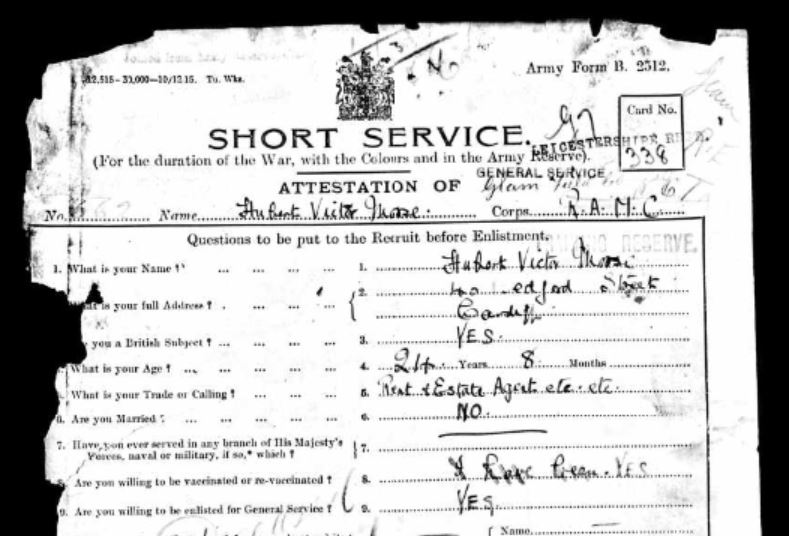 Army Form B. 2512.
12,515—30,000—10/12 15. Tu. Wks.
Card No.
338
SHORT SERVICE.
LEICESTERSHIRE
(For the duration of the War, with the Colours and in the Army Reserve).
GENERAL SERVICE
ATTESTATION OF
No. Name Hubert Victor Morse. Corps R.A.M.C
Questions to be put to the Recruit before Enlistment.
RESERVE.
1. What is your Name? 1. Hubert Victor Morse
is your full Address? 2. Street
Cardiff
you a British Subject? 3. YES.
What is your Age? 4. 24 Years 8 Months
What is your Trade or Calling? 5. Rent & Estate Agent etc. etc.
6. Are you Married? 6. NO.
7. Have you ever served in any branch of His Majesty's 7.
Forces, naval or military, if so,* which?
Are you willing to be vaccinated or re-vaccinated? 8. I Have been. YES
9. Are you willing to be enlisted for General Service? 9. YES
Name